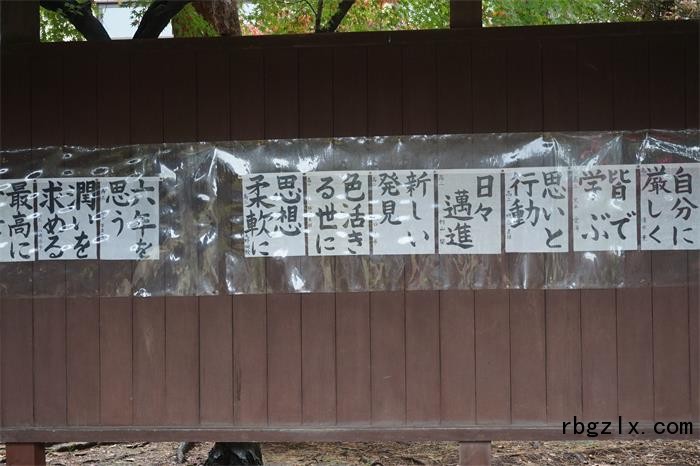 自分に
厳しく
皆で
学ぶ
思いと
行動
日々
邁進
新しい
発見
色活き
る世に
思想
柔軟に
六年を
思う
潤いを
求める
最高に
rbgzlx.com